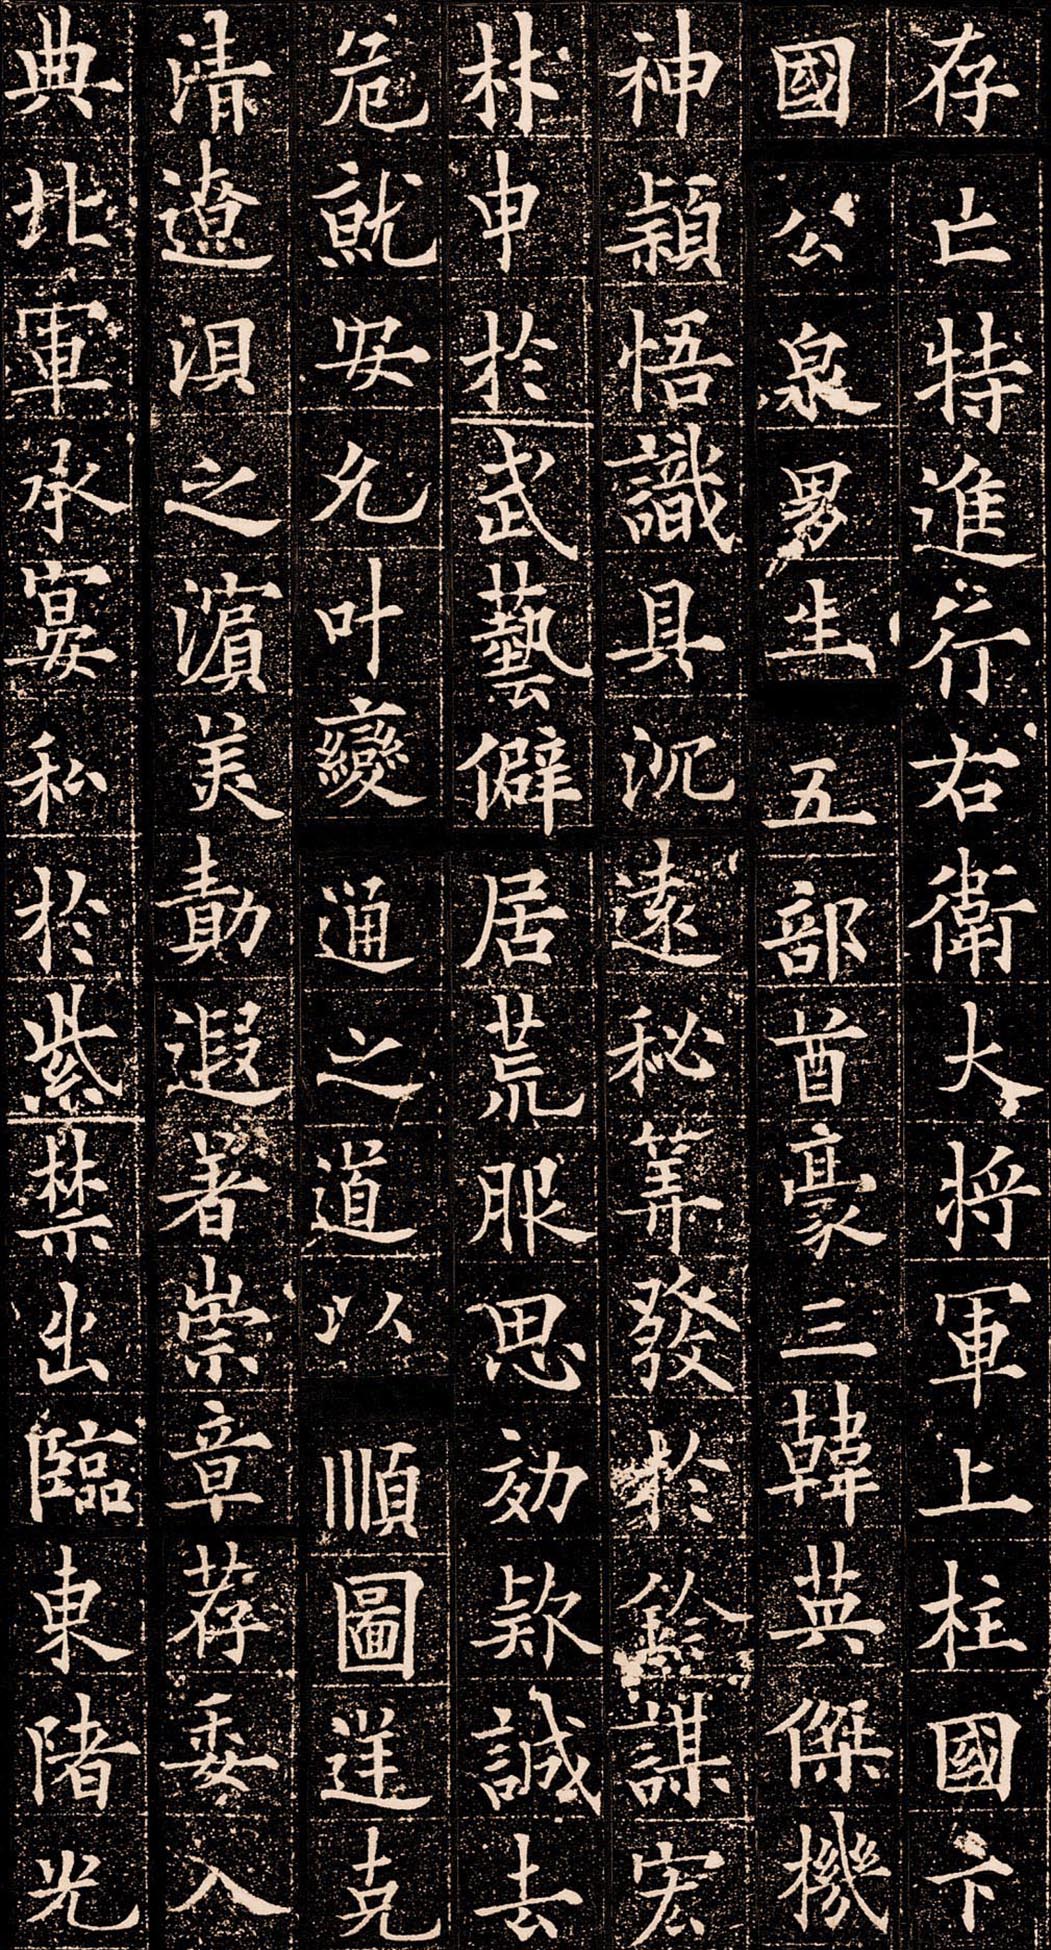 存亡特進行右衛大将軍上柱國卞
國公泉男生五部酋豪三韓英傑機
神穎悟識具沉遠秘筭發於鈐謀宏
材申於武藝僻居荒服思効欵誠去
危就安允叶變通之道以順圖逆克
清遼浿之濱美勣遐著崇章荐委入
典北軍承宴私於紫禁出臨東陼光